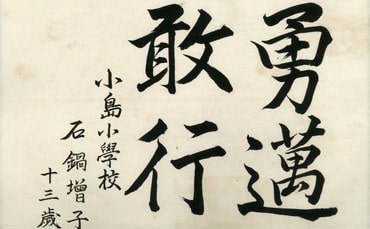 勇邁
敢行
小島小學校
石鍋增子
十三歲